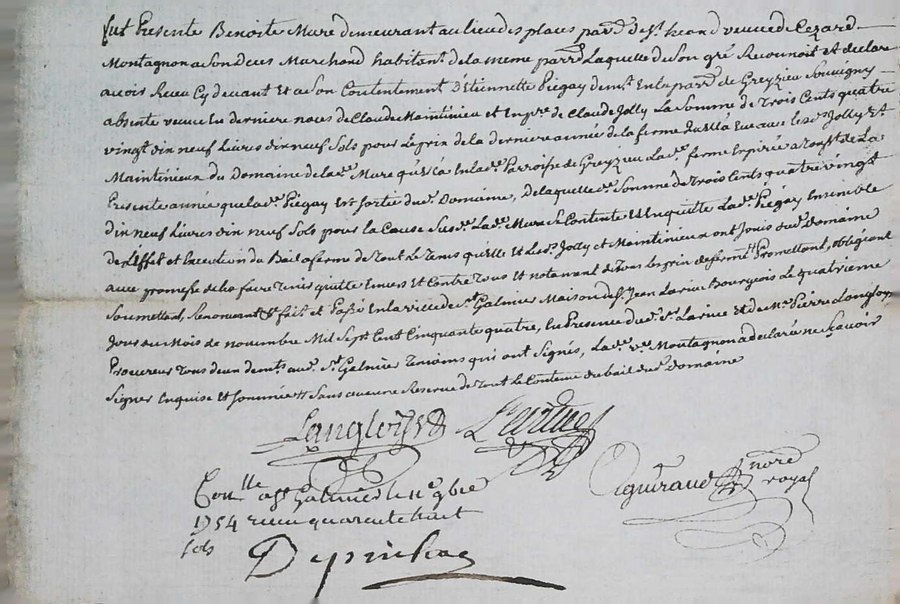 fut Presente Benoite Mure demeurant au lieu des places parr. de St. heand veuve de Cezard
Montagnon a Son deces Marchand habitent de la meme parr. Laquelle de Son gré Reconnoit et declare
avoir Receu Cy devant et a Son Contentement d'Etiennette Piegay dem.t En la par.e de Greyzieu Souvigny
absente veuve en derniere noces de Claude Maintinieux et En pr.e de Claude Jolly La Somme de Trois Cents quatre
vingt dix neuf Livres dix neuf Sols pour Le prix de la derniere année de la ferme qu'Elle a Eu avec les d. Jolly Et
Maintinieux du Domaine de la de. Mure qu'Elle a En la de. Parroisse de Greyzieu La de. ferme Expirée a de La
Presente année que la de. Piegay Est Sortie du d. Domaine, De laquelle de. Somme de Trois Cents quatre vingt
dix neuf Livres dix neuf Sols pour la Cause Sus de. La de. Mure Se Contente Et En quitte La de. Piegay Ensemble
de L'Effet et Execution du Bail a ferme de Tout Le Tems qu'Elle Et Les d. Jolly et Maintinieux ont Jouis du d. Domaine
avec promesse de La faire Tenir quitte Envers et Contre Tous et notenant de Tous les prix de ferme Promettant, obligeant
Soumettant, Renonceant &c. fait et Passé En la ville de St. Galmier Maison de S.r Jean Larive Bourgeois Le quatrieme
Jour du Mois de novembre Mil Sept Cent Cinquante quatre, En Presence du d. S.r Larive et de M.e Pierre Langloy,
Procureur Tous deux dem.ts au d. St. Galmier Temoins qui ont Signés, La de. ve. Montagnon a declaré ne Scavoir
Signer Enquise Et Sommée &c. Sans aucune Reserve de Tout Le Contenu du bail du d. Domaine
Langloys
Larive
Aguiraud nore
royal
Con.lle a St Galmier le 11e 9bre
1754 receu quarente huit
sols